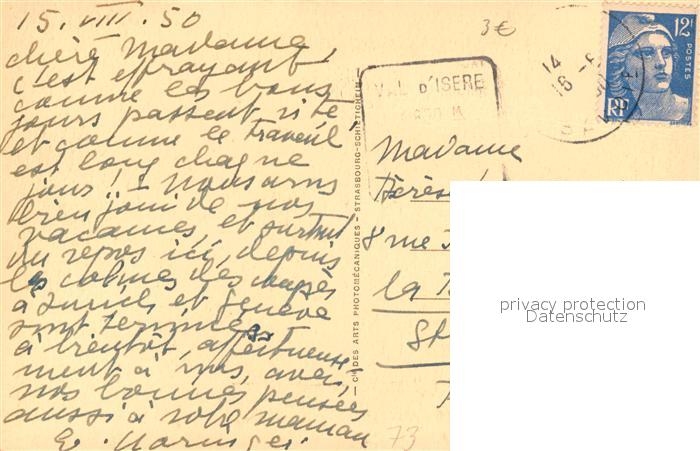 15. VIII. 50
3€
chère Madame,
c'est effrayant
comme les bons
jours passent vite
et comme le travail
est long chaque
jour! – Nous avons
bien joui de nos
vacances, et surtout
du repos ici, depuis
les
à Zurich et Genève
sont terminés
à bientôt, affectueuse
ment à vous, avec
nos bonnes pensées
aussi à votre maman
E.
VAL D'ISERE
14
16
12F
POSTES
RF
Madame
8 rue
la
St
73
— Cie DES ARTS PHOTOMÉCANIQUES - STRASBOURG-SCHILTIGHEIM —
privacy protection
Datenschutz